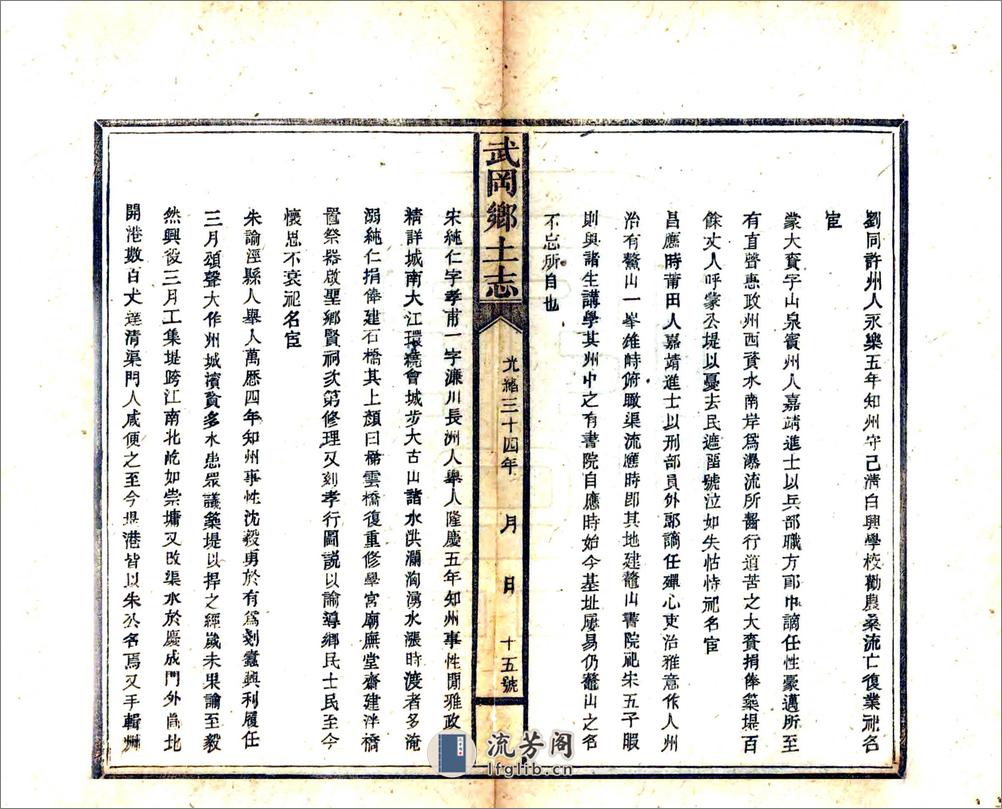 劉同許州人永樂五年知州守己清白興學校勸農桑流亡復業祀名
宦
蒙大賚字山泉賓州人嘉靖進士以兵部職方郎中謫任性豪邁所至
有直聲惠政州西資水南岸爲瀑流所齧行道苦之大賚捐俸築堤百
餘丈人呼蒙公堤以憂去民遮畱號泣如失怙恃祀名宦
昌應時莆田人嘉靖進士以刑部員外郭謫任殫心吏治雅意作人州
治有鰲山一峯維時俯瞰渠流應時卽其地建鰲山書院祀朱五子暇
則與諸生講學其州中之有書院自應時始今基址屢易仍鰲山之名
不忘所自也
武岡鄉土志
光緒三十四年 月 日 十五號
宋純仁字孝甫一字濂川長洲人舉人隆慶五年知州事性閒雅政
精詳城南大江環繞會城步大古山諸水洪瀾洶湧水漲時渡者多淹
溺純仁捐俸建石橋其上顏曰梯雲橋復重修學宮廟廡堂齋建泮橋
置祭器啟聖鄉賢祠次第修理又刻孝行圖說以諭導鄉民士民至今
懷思不衰祀名宦
朱諭涇縣人舉人萬歷四年知州事性沈毅勇於有爲剗蠹興利履任
三月頌聲大作州城濱資多水患眾議築堤以捍之經歲未果諭至毅
然興役三月工集堤跨江南北屹如崇墉又改渠水於慶成門外爲北
開港數百丈達清渠門人咸便之至今堤港皆以朱公名焉又手輯州
流芳阁
lfglib.cn